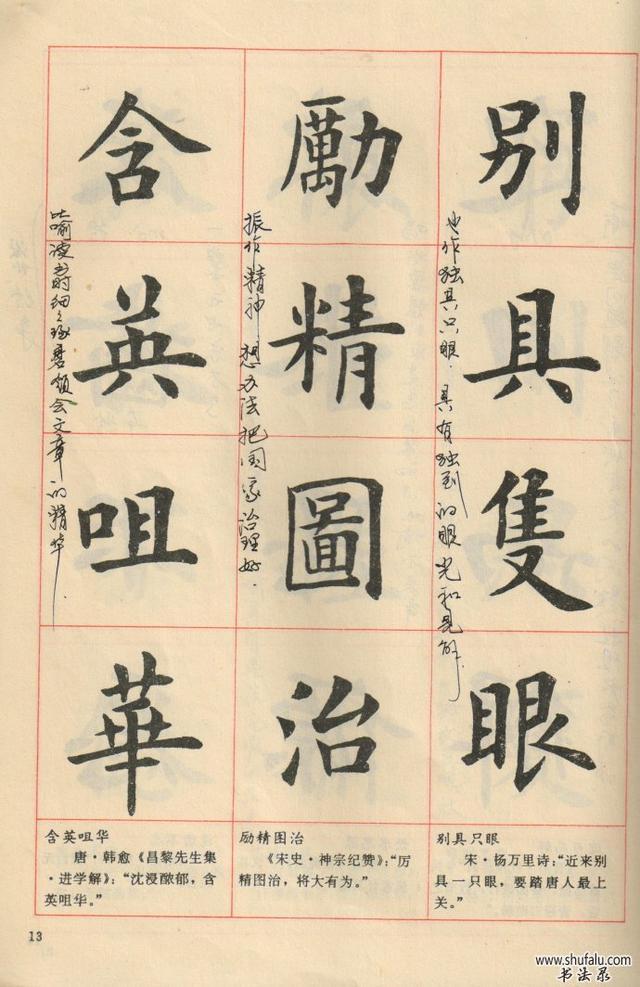 別具隻眼
也作独具只眼.具有独到的眼光和見解.
勵精圖治
振作精神 想办法把国家治理好.
含英咀華
比喻读书时细々琢磨领会文章的精华.
别具只眼
宋·杨万里诗：“近来别
具一只眼，要踏唐人最上
关。”
励精图治
《宋史·神宗纪赞》：“厉
精图治，将大有为。”
含英咀华
唐·韩愈《昌黎先生集
·进学解》：“沈浸醲郁，含
英咀华。”
13
www.shufalu.com
书法录